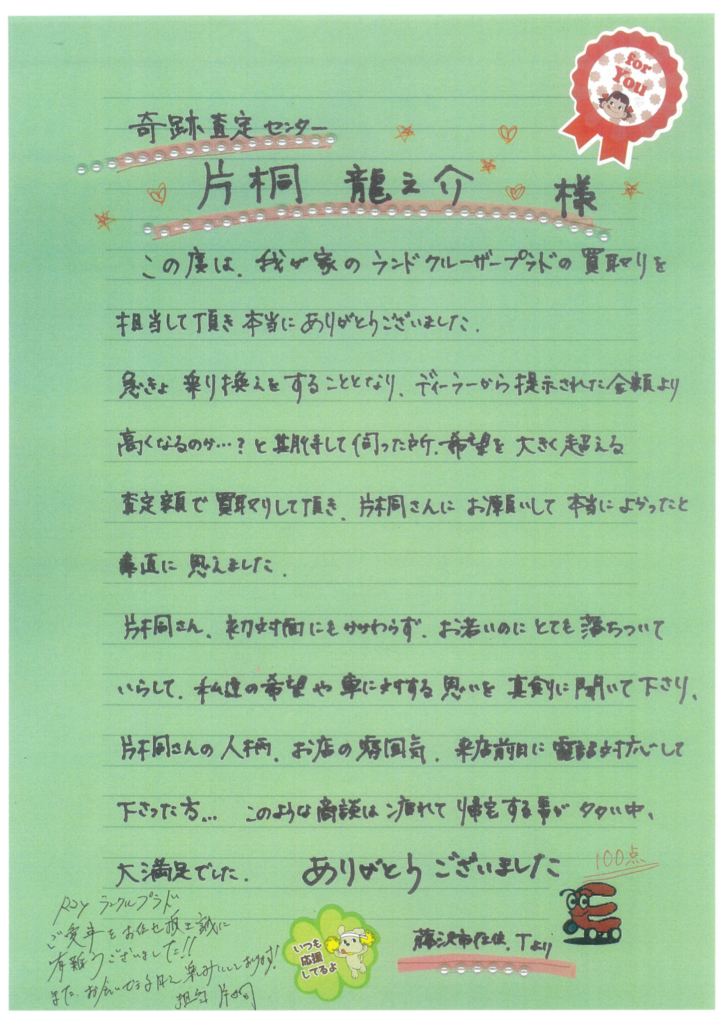 for
You
奇跡査定センター
片桐 龍之介 様
この度は、我が家のランドクルーザープラドの買取りを
担当して頂き本当にありがとうございました。
急きょ乗り換えをすることとなり、ディーラーから提示された金額より
高くなるのか…?と期待して伺った所、希望を大きく超える
査定額で買取りして頂き、片桐さんにお願いして本当によかったと
素直に思えました。
片桐さん、初対面にもかかわらず、お若いのにとても落ちついて
いらして、私達の希望や車に対する思いを真剣に聞いて下さり、
片桐さんの人柄、お店の雰囲気、来店前日に電話対応して
下さった方… このような商談は疲れて帰宅する事が多い中、
大満足でした。 ありがとうございました
100点
藤沢市在住、Tより
いつも
応援
してるよ
ランクルプラド
ご愛車をお任せ頂き誠に
有難うございました!!
また、お会いできる日を楽しみにしております!
担当 片桐